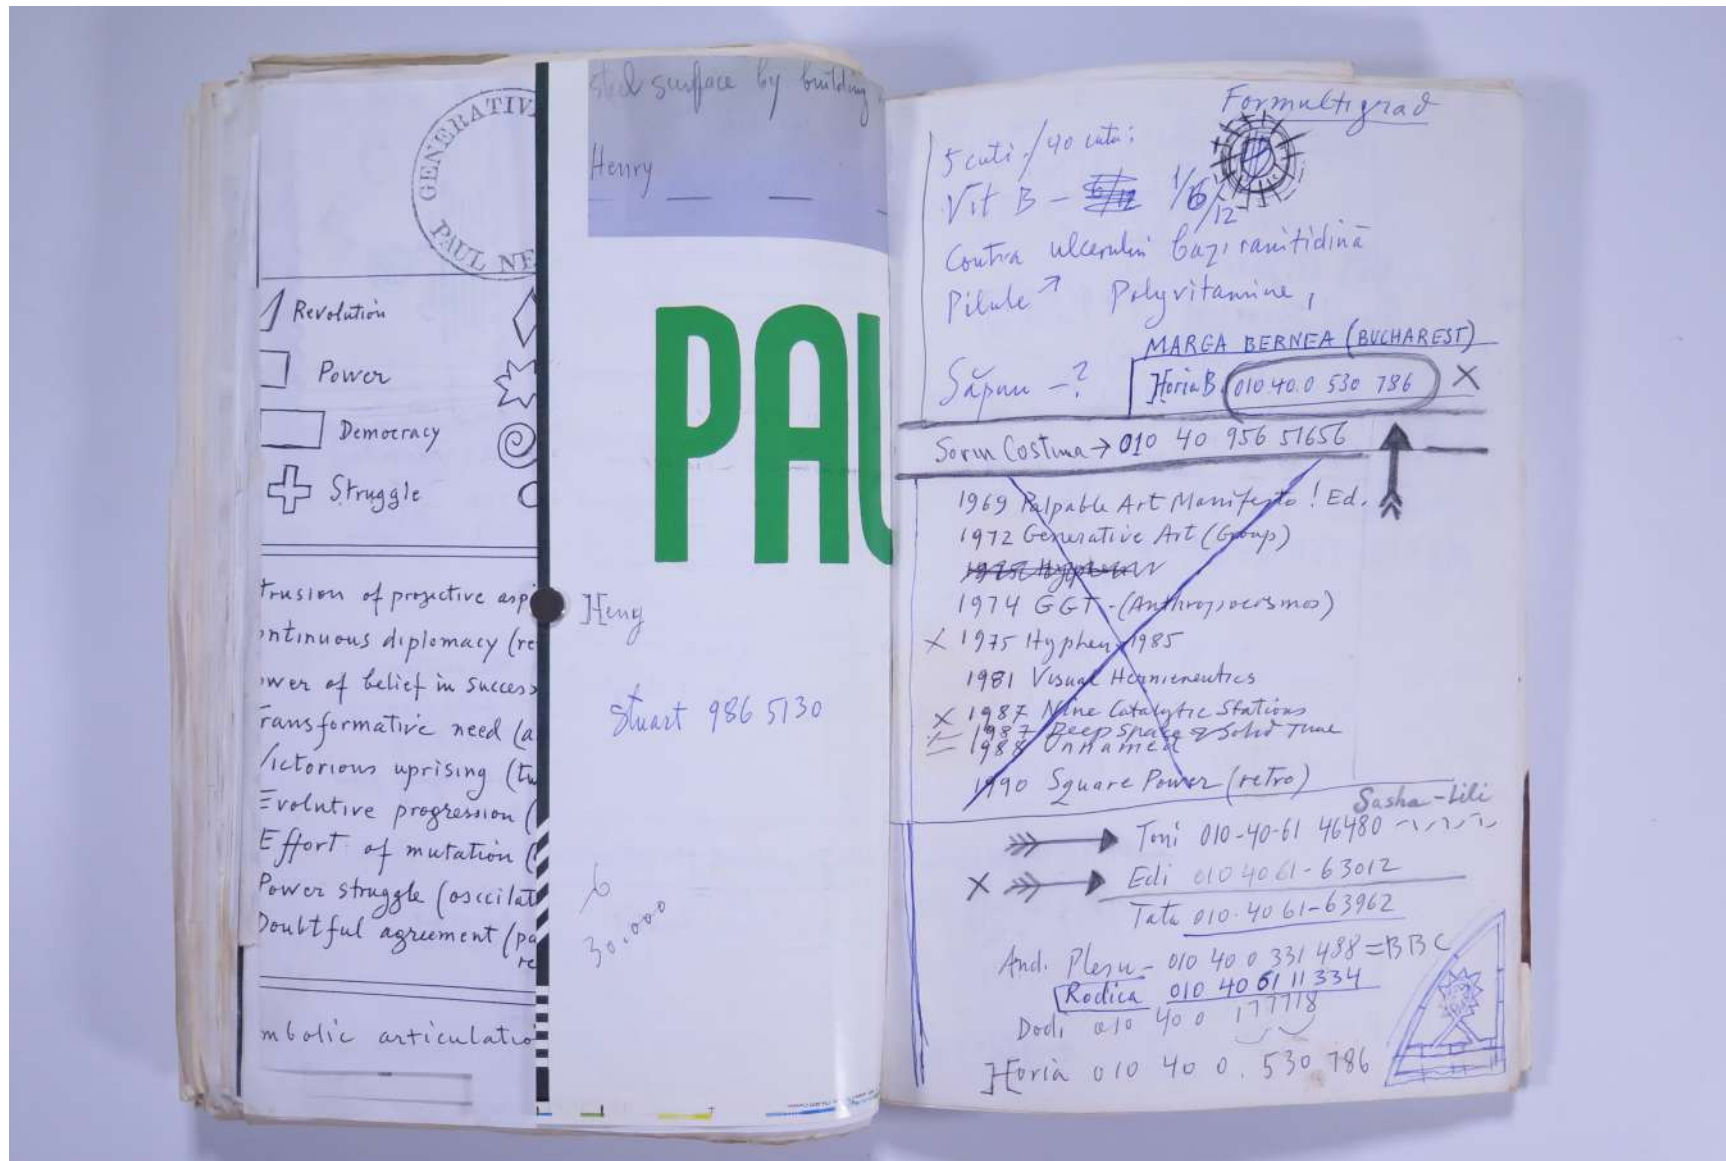 GENERATIV
PAUL NE
Revolution
Power
Democracy
Struggle
trusion of projective asp
ontinuous diplomacy (re
ower of belief in success
ransformative need (a
Victorious uprising (tu
Evolutive progression (
Effort of mutation (
Power struggle (osccilat
Doubtful agreement (pa
re
mbolic articulatio
sted surface by building
Henry
PAU
Heng
Stuart 986 5130
6
30.000
Formultigrad
5 cutii / 40 cuta:
Vit B - 1/6/12
Contra ulcerului ranitidină
Pilule ↗ Polyvitamine,
MARGA BERNEA (BUCHAREST)
Săpun -? Horia B. 010 40.0 530 786 X
Sorin Costina → 010 40 956 51656
1969 Palpable Art Manifesto ! Ed.
1972 Generative Art (Group)
1974 GGT - (Anthropocosmos)
X 1975 Hyphen - 1985
1981 Visual Hermeneutics
X 1987 Nine Catalytic Stations
1987 Deep Space & Solid Time
1988 Unnamed
1990 Square Power (retro)
Sasha - Lili
Toni 010-40-61 46480
X Edi 010 40.61-63012
Tata 010.40 61-63962
And. Plesu - 010 40 0 331 488 = BBC
Rodica 010 40 61 11 334
Dodi 010 40 0 177718
Horia 010 40 0. 530 786